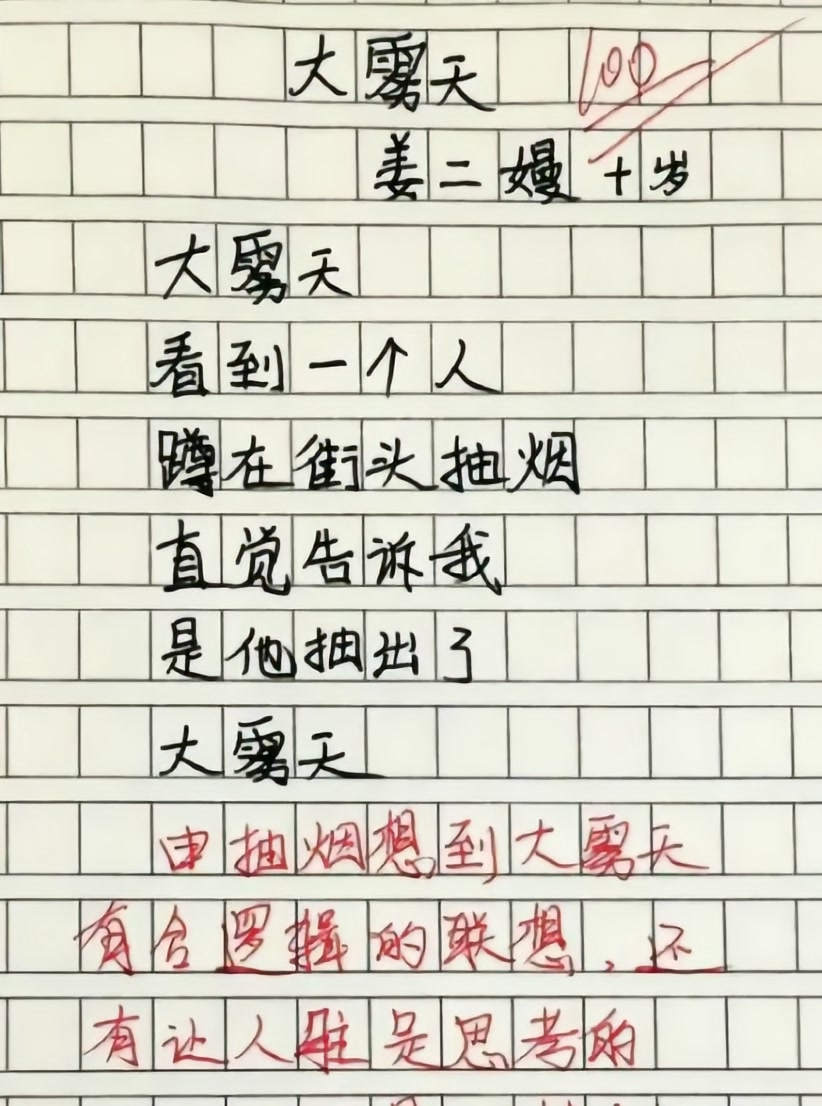 大雾天 100
姜二嫚 十岁
大雾天
看到一个人
蹲在街头抽烟
直觉告诉我
是他抽出了
大雾天
由抽烟想到大雾天
有合逻辑的联想，还
有让人驻足思考的